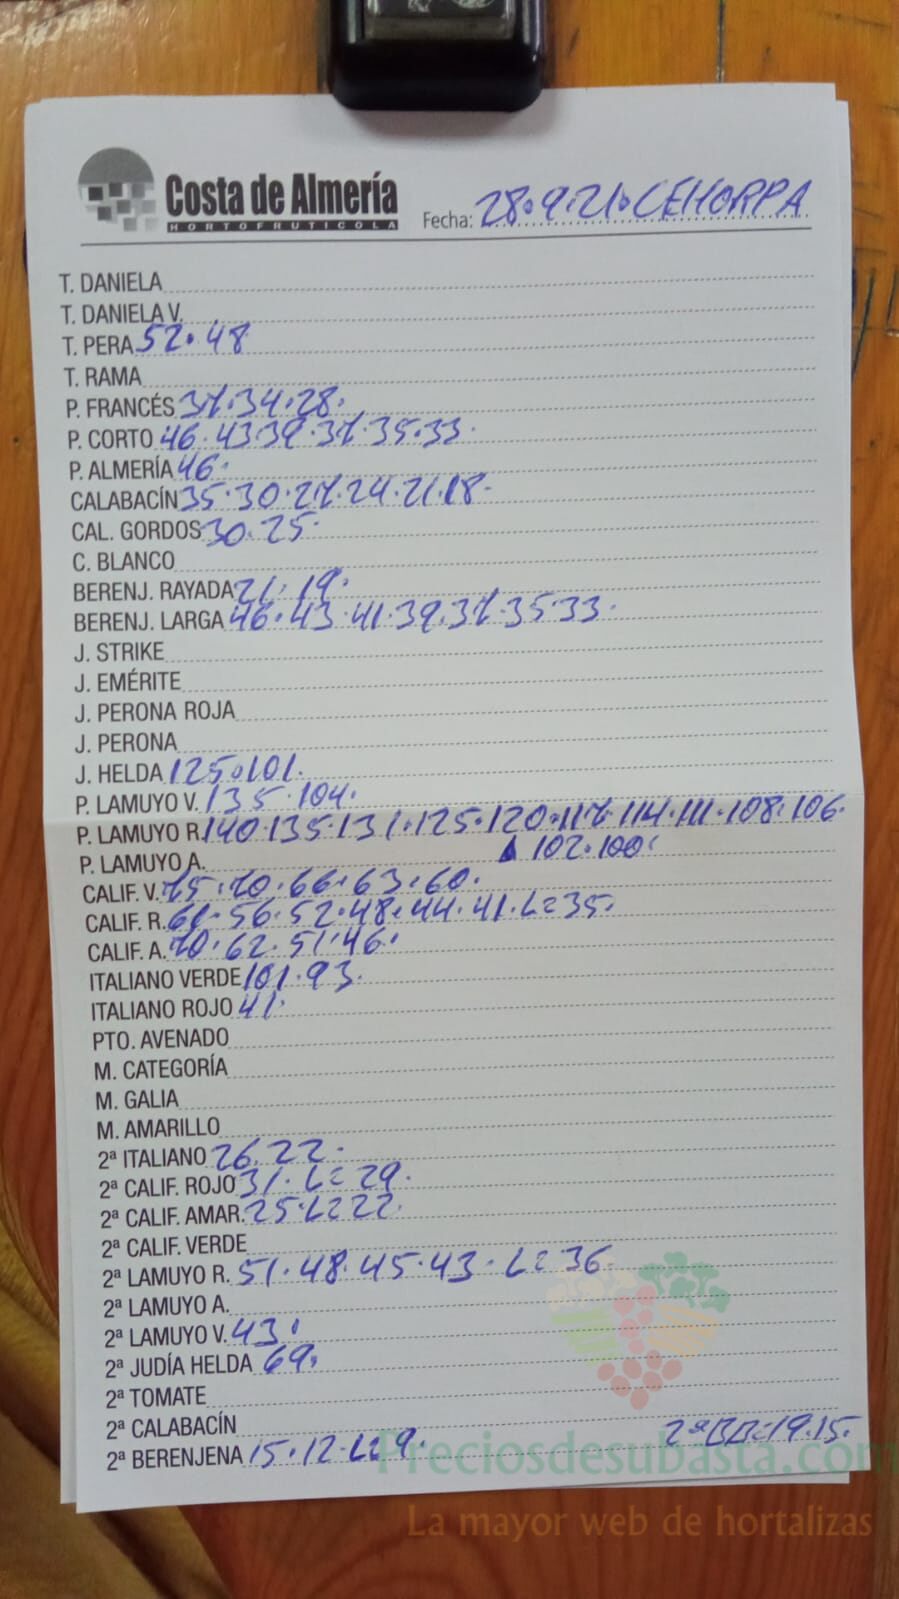 Costa de Almería
HORTOFRUTICOLA
Fecha: 28.9.21. CEHORPA
T. DANIELA
T. DANIELA V.
T. PERA 52. 48
T. RAMA
P. FRANCÉS 37. 34. 28.
P. CORTO 46. 43 39. 37. 35. 33.
P. ALMERÍA 46.
CALABACÍN 35. 30. 27. 24. 21. 18.
CAL. GORDOS 30. 25.
C. BLANCO
BERENJ. RAYADA 21. 19.
BERENJ. LARGA 46. 43. 41. 39. 37. 35. 33.
J. STRIKE
J. EMÉRITE
J. PERONA ROJA
J. PERONA
J. HELDA 125. 101.
P. LAMUYO V. 135. 104.
P. LAMUYO R. 140. 135. 131. 125. 120. 117. 114. 111. 108. 106.
102. 100.
P. LAMUYO A.
CALIF. V. 75. 70. 66. 63. 60.
CALIF. R. 56. 52. 48. 44. 41. L= 35.
CALIF. A. 70. 62. 51. 46.
ITALIANO VERDE 101. 93.
ITALIANO ROJO 41.
PTO. AVENADO
M. CATEGORÍA
M. GALIA
M. AMARILLO
2ª ITALIANO 26. 22.
2ª CALIF. ROJO 31. L= 29.
2ª CALIF. AMAR. 25. L= 22.
2ª CALIF. VERDE
2ª LAMUYO R. 51. 48. 45. 43. L= 36.
2ª LAMUYO A.
2ª LAMUYO V. 43.
2ª JUDÍA HELDA 69.
2ª TOMATE
2ª CALABACÍN
2ª BB= 19. 15.
2ª BERENJENA 15. 12. L= 9.
Preciosdesubasta.com
La mayor web de hortalizas